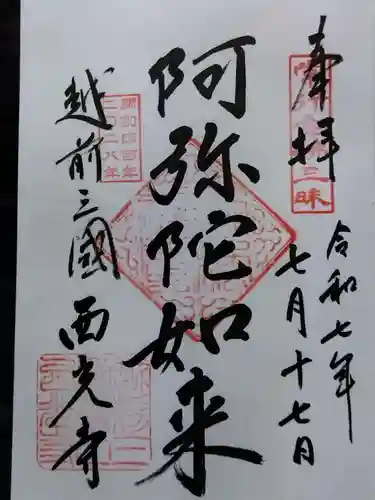 奉拝
令和七年
七月十七日
阿弥陀如来
越前三國
西光寺
開創四百年
二〇二八年
三昧